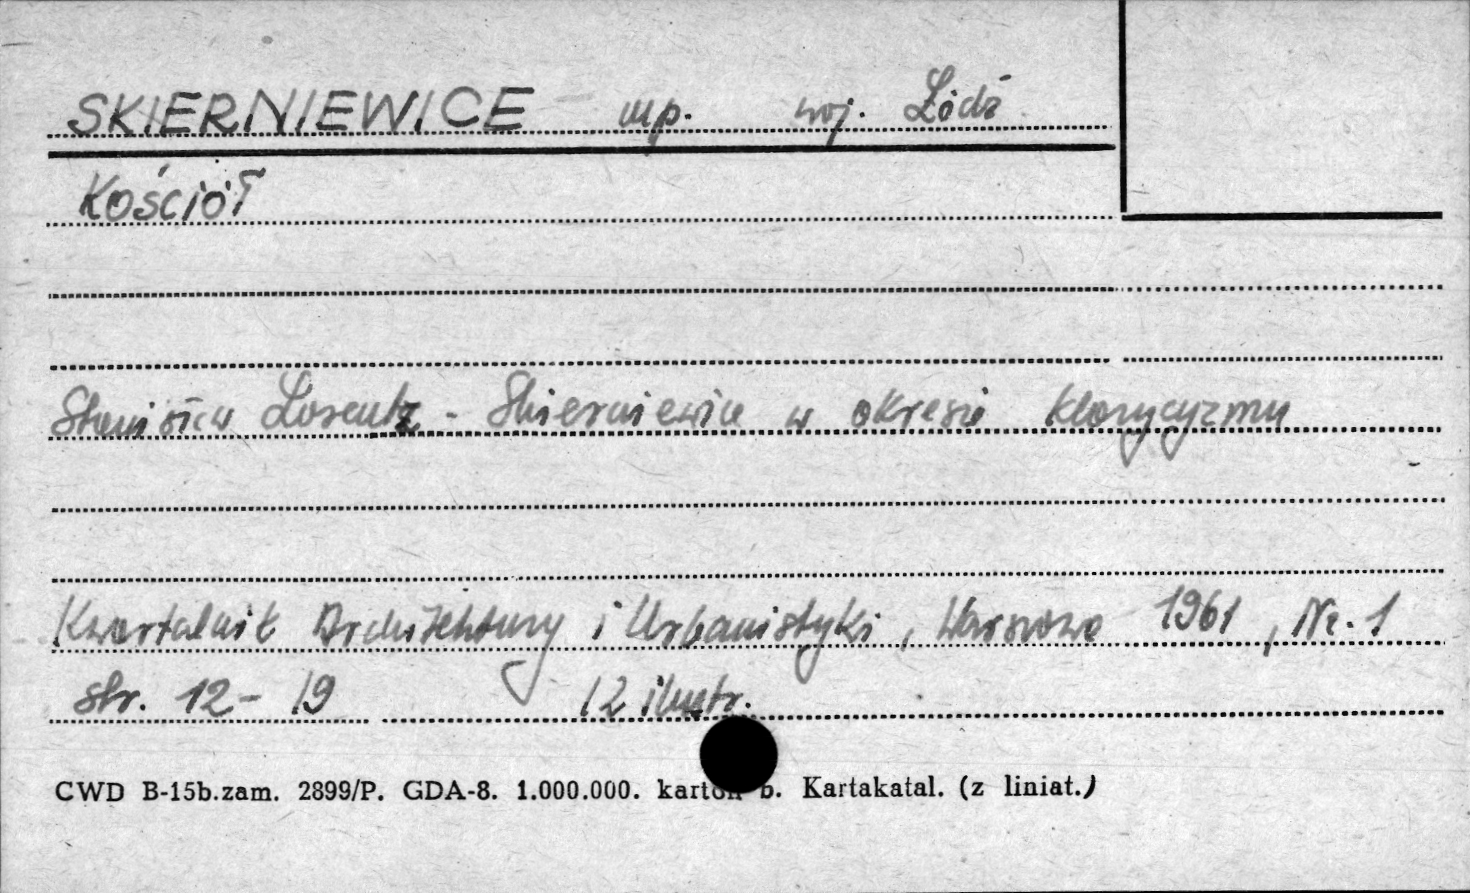 SKIERNIEWICE mp. woj. Łódź
Kościół
Stanisław Lorentz - Skierniewice w okresie klasycyzmu
Kwartalnik Architektury i Urbanistyki, Warszawa 1961, Nr. 1
str. 12-19 12 ilustr.
CWD B-15b.zam. 2899/P. GDA-8. 1.000.000. karton b. Kartakatal. (z liniat.)